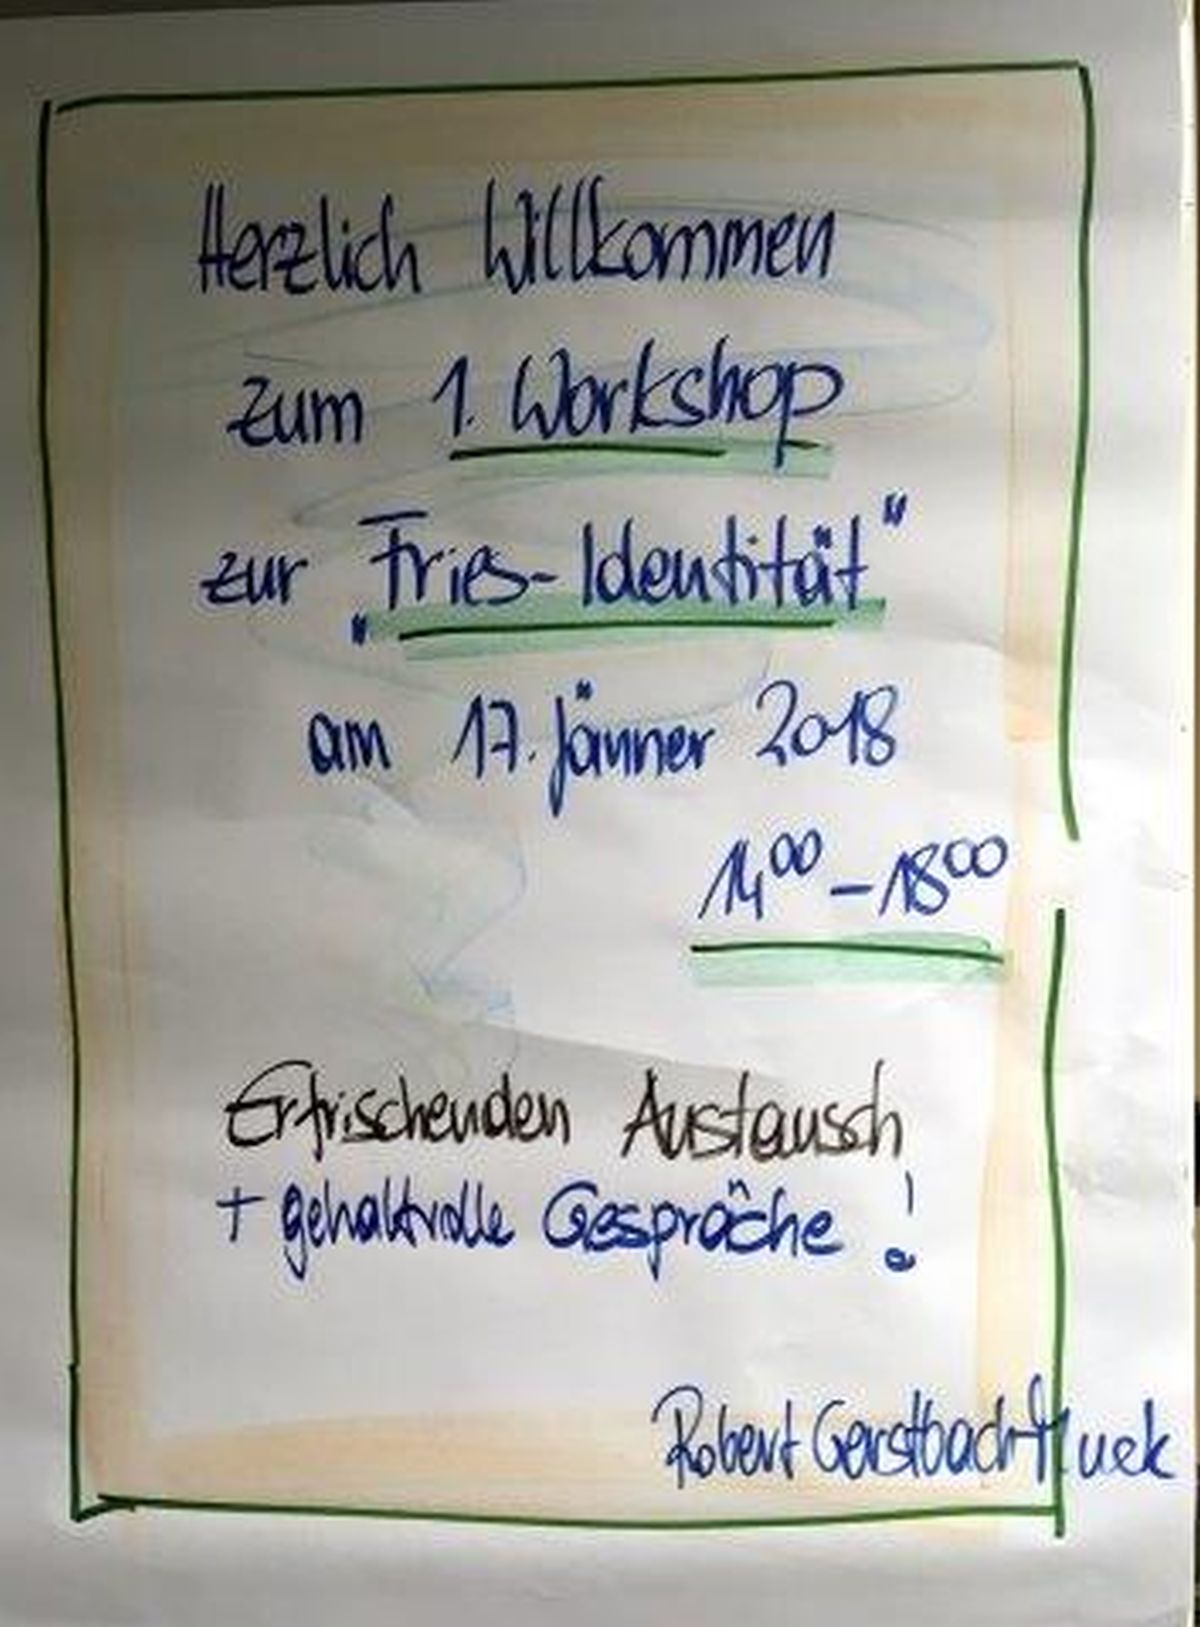 Herzlich Willkommen
zum 1. Workshop
zur „Fries-Identität"
am 17. Jänner 2018
14⁰⁰ – 18⁰⁰
Erfrischenden Austausch
+ gehaltvolle Gespräche!
Robert Gerstbach-Muck